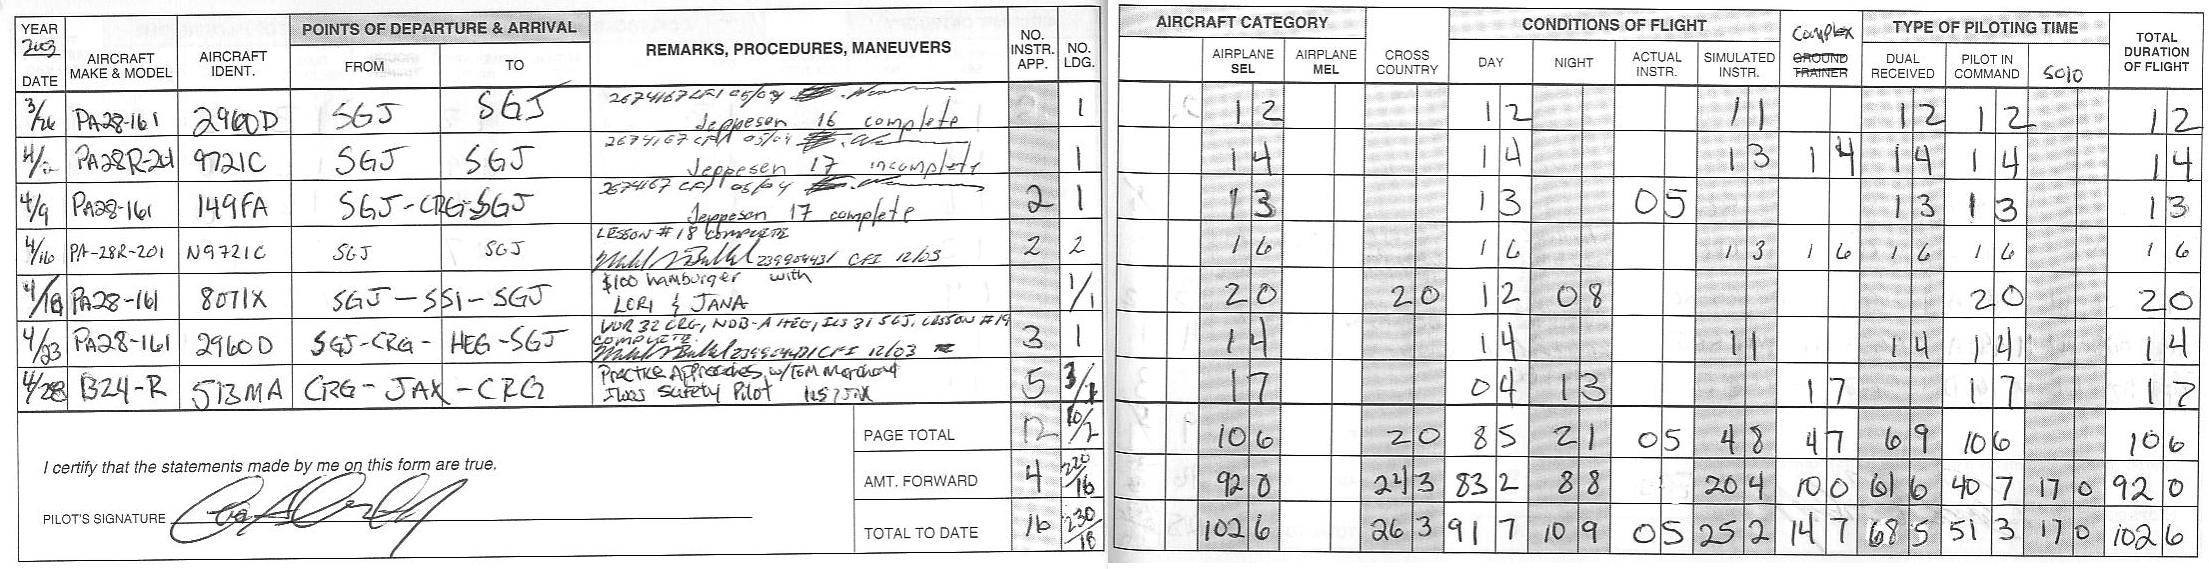 YEAR 2003 DATE AIRCRAFT MAKE & MODEL AIRCRAFT IDENT. POINTS OF DEPARTURE & ARRIVAL FROM TO REMARKS, PROCEDURES, MANEUVERS NO. INSTR. APP. NO. LDG. AIRCRAFT CATEGORY AIRPLANE SEL AIRPLANE MEL CROSS COUNTRY CONDITIONS OF FLIGHT DAY NIGHT ACTUAL INSTR. SIMULATED INSTR. Complex GROUND TRAINER TYPE OF PILOTING TIME DUAL RECEIVED PILOT IN COMMAND Solo TOTAL DURATION OF FLIGHT
2674167 CFI 05/04
3/26 PA28-161 2960D SGJ SGJ Jeppesen 16 complete 1 1 2 1 2 1 1 1 2 1 2 1 2
2674167 CFI 05/04
4/2 PA28R-201 9721C SGJ SGJ Jeppesen 17 incomplete 1 1 4 1 4 1 3 1 4 1 4 1 4 1 4
2674167 CFI 05/04
4/9 PA28-161 149FA SGJ-CRG-SGJ Jeppesen 17 complete 2 1 1 3 1 3 0 5 1 3 1 3 1 3
LESSON #18 COMPLETE
4/16 PA-28R-201 N9721C SGJ SGJ 239904431 CFI 12/03 2 2 1 6 1 6 1 3 1 6 1 6 1 6 1 6
$100 hamburger with
4/18 PA28-161 8071X SGJ-SSI-SGJ LORI & JANA 1/1 2 0 2 0 1 2 0 8 2 0 2 0
VOR 32 CRG, NDB-A HEG, ILS 31 SGJ, LESSON #19
COMPLETE
4/23 PA28-161 2960D SGJ-CRG-HEG-SGJ 239904431 CFI 12/03 3 1 1 4 1 4 1 1 1 4 1 4 1 4
Practice Approaches w/Tom
4/28 B24-R 513MA CRG-JAX-CRG I was Safety Pilot 5 3/1 1 7 0 4 1 3 1 7 1 7 1 7
PAGE TOTAL 12 10/2 10 6 2 0 8 5 2 1 0 5 4 8 4 7 6 9 10 6 10 6
I certify that the statements made by me on this form are true.
AMT. FORWARD 4 220/16 92 0 24 3 83 2 8 8 20 4 10 0 61 6 40 7 17 0 92 0
PILOT'S SIGNATURE
TOTAL TO DATE 16 230/18 102 6 26 3 91 7 10 9 0 5 25 2 14 7 68 5 51 3 17 0 102 6